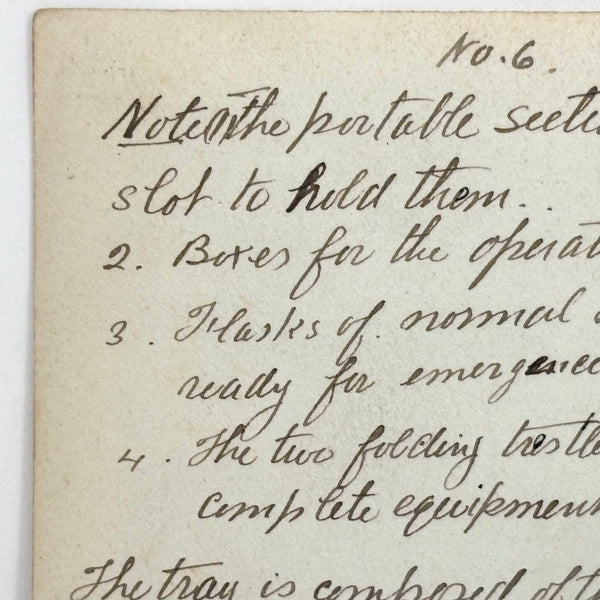 No. 6.
Note the portable secti
slot to hold them..
2. Boxes for the operat
3. Flasks of normal
ready for emergence
4. The two folding trestle
complete equipment
The tray is composed of